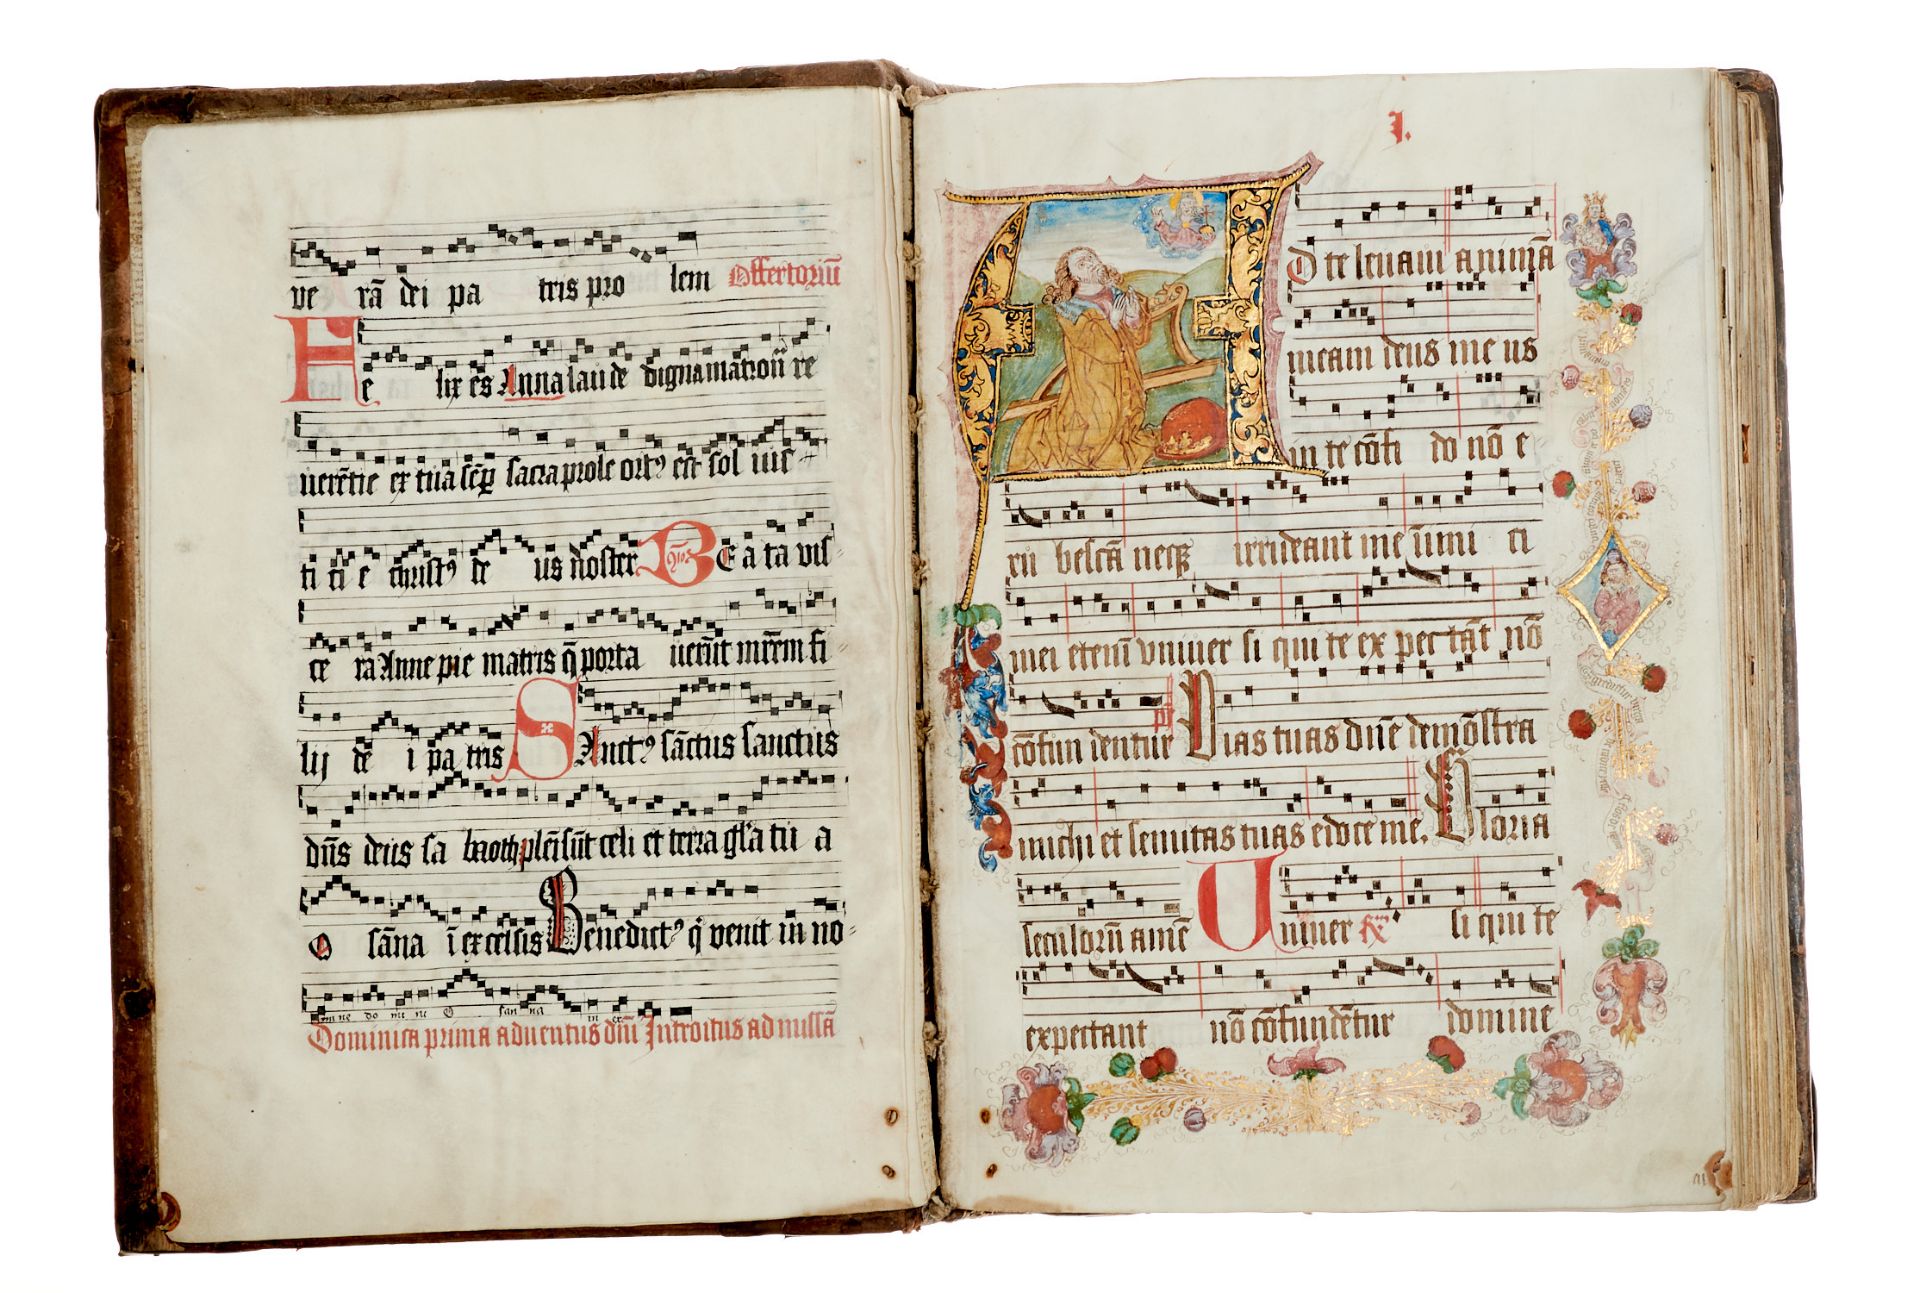 ve rā dei pa tris pro lem Offertoriū
Fe lix es Anna laude dignamatronū re
uerētie ex tua sēp sacra prole ortꝰ est sol ius
ti ti e christꝰ de us noster Cōio Be a ta vis
ce ra Anne pie matris q̄ porta uerūt mr̄em fi
lij de i pa tris Sanctꝰ sāctus sanctus
dn̄s deus sa baoth plēi sūt celi et terra gl̄a tu a
O sāna ī excelsis Benedictꝰ q̄ venit in no
mine do mi ni O san na in ex
Dominica prima aduentus dn̄i Introitus ad missā
I.
AD te leuaui animā
meam deus me us
in te cōfi do nō e
ru bescā neqꝫ irrideant me inimi ci
mei etenī vniuer si qui te ex pec tāt nō
cōfun dentur ps Uias tuas dn̄e demōstra
michi et semitas tuas edoce me. Gloria
seculorū amē Uniuer si qui te
expectant nō cōfundētur domine